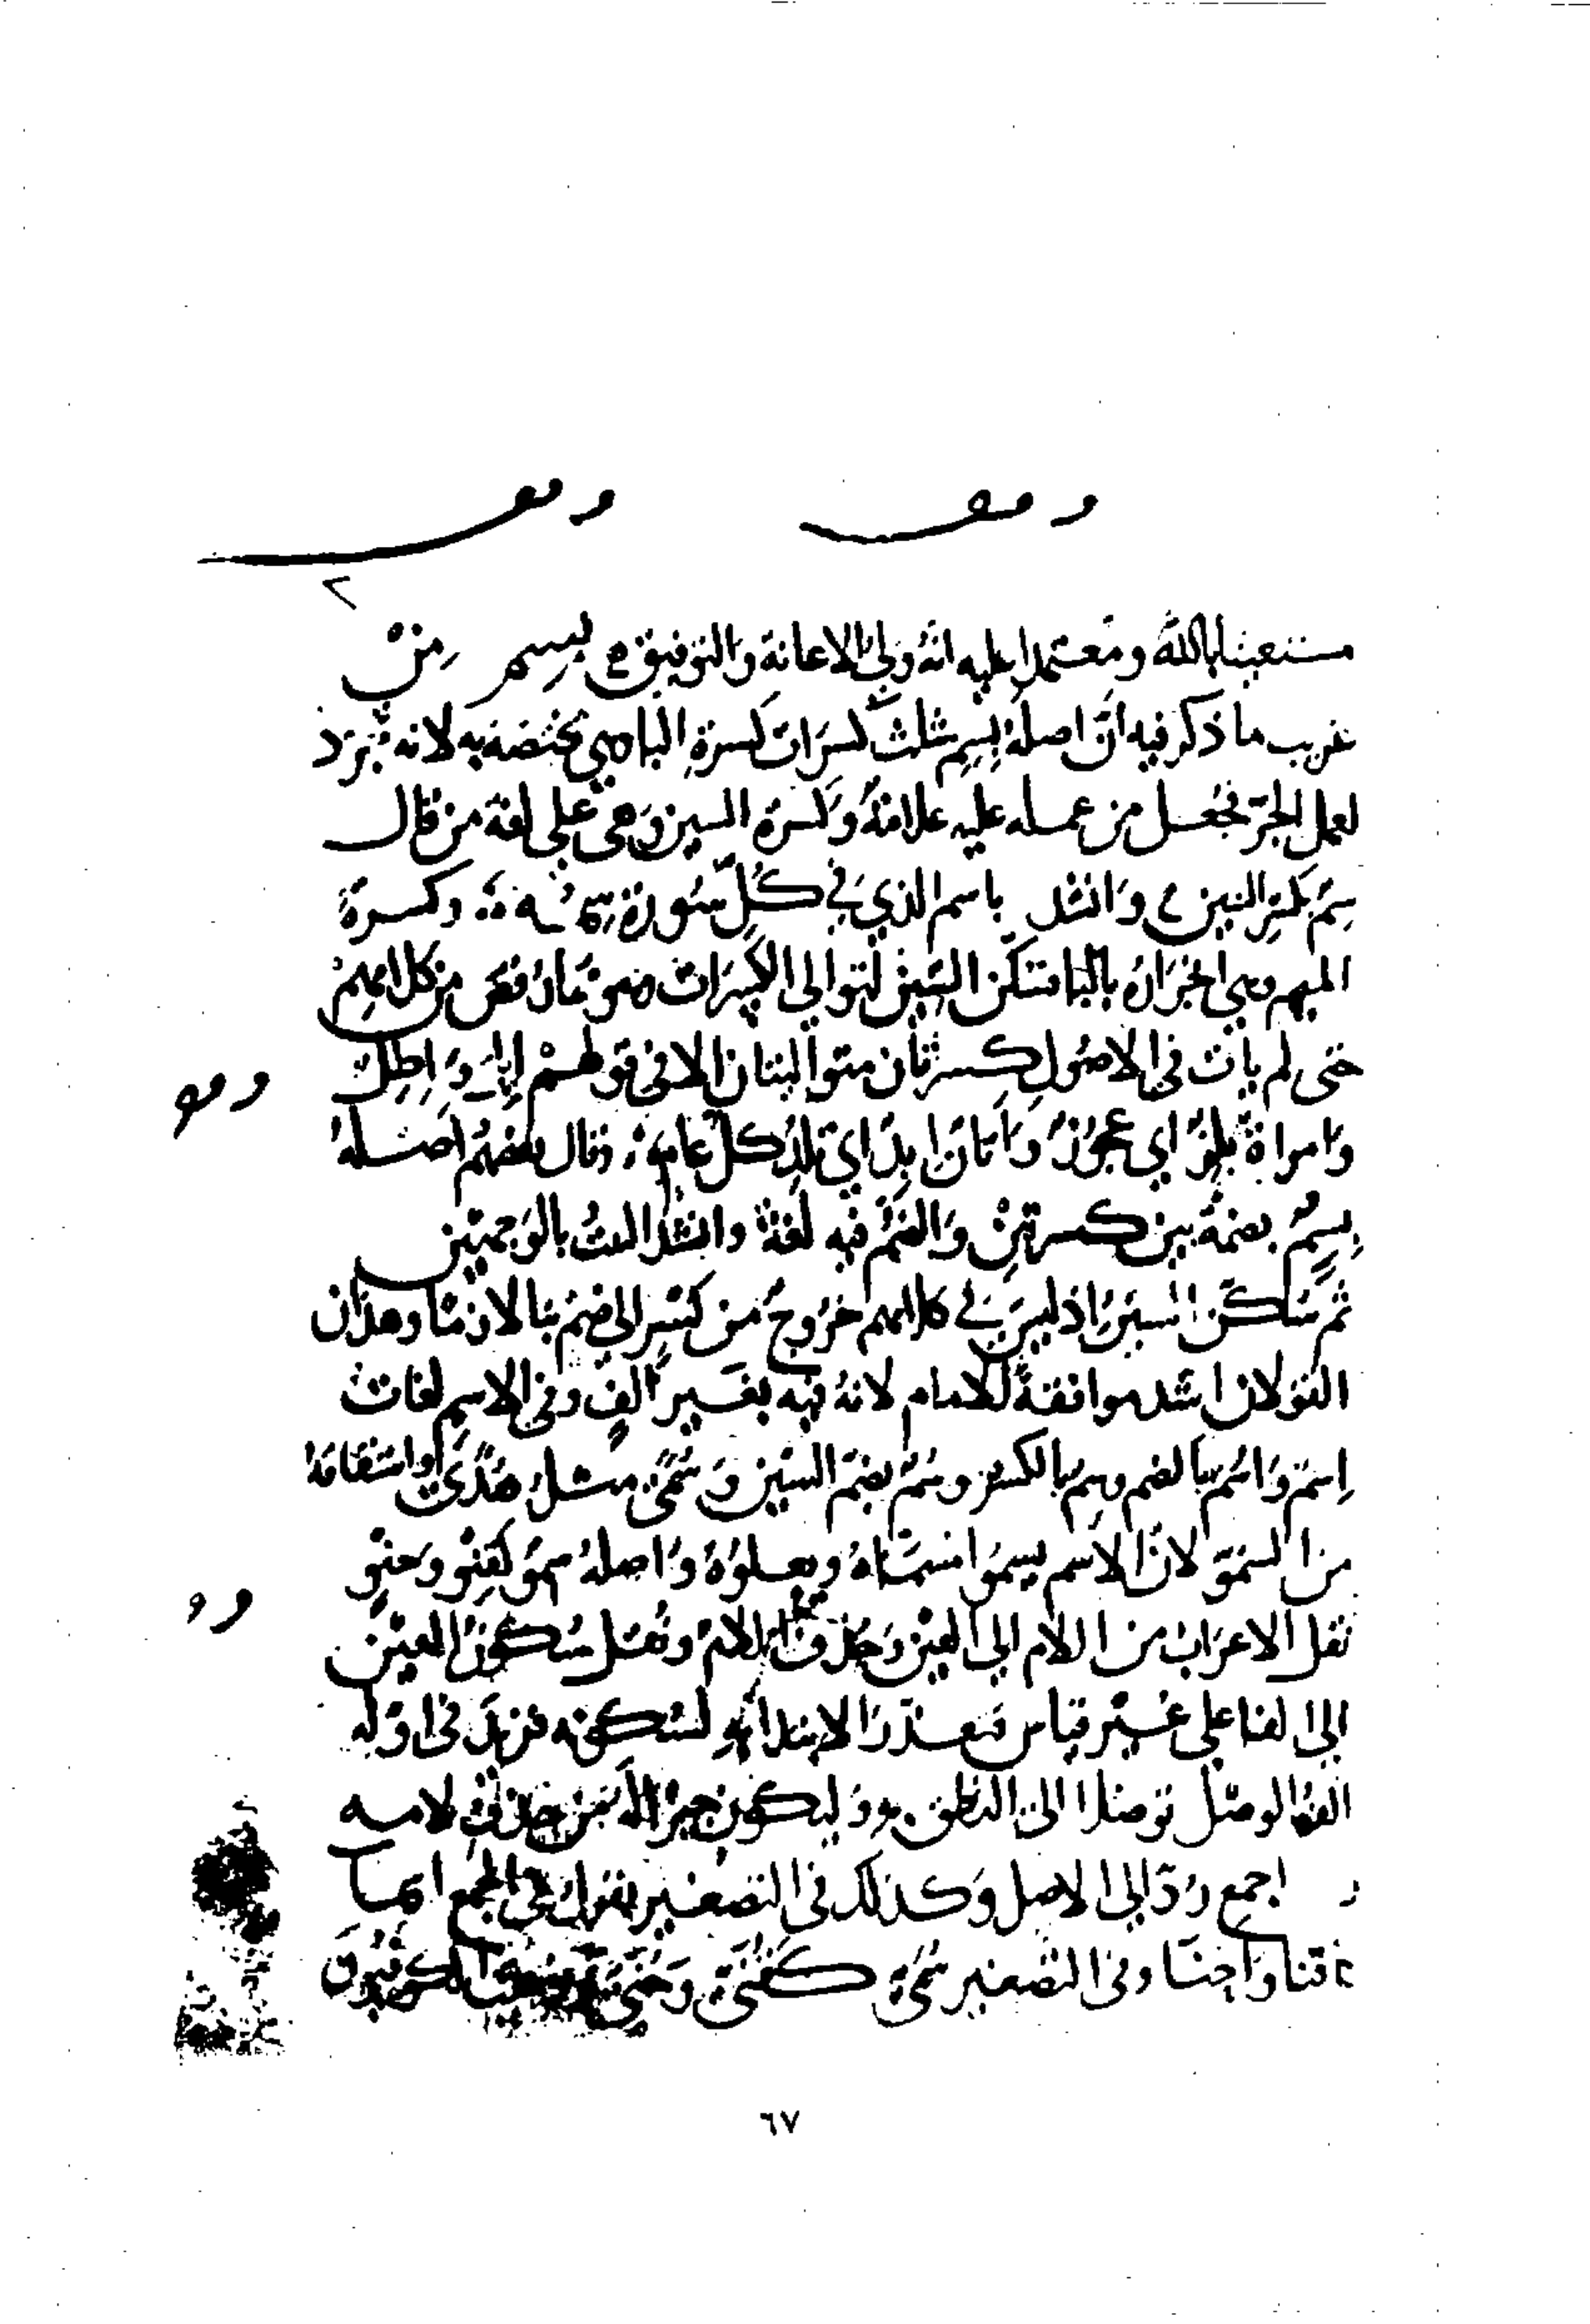 وقف وقف
مستعينا بالله ومعتمدا عليه انه ولي الاعانة والتوفيق بسم من
غريب ما ذكر فيه ان اصله بِسِمِ بثلث كسرات كسرة الباء وهي مختصة به لانه تجرد
لعمل الجر فجعل من عمله عليه علامة وكسرة السين وهي على لغة من قال
سِم بكسر السين وانشد باسم الذي في كل سورة سمه وكسرة
الميم وهي اجرارة بالباء فتسكن السين لتوالي الكسرات وهو مما رفض من كلامهم
حتى لم يات في الاصول كسرتان متواليتان الا في قولهم ابل واطل وقف
وامراة بلز اي عجوز واتان ابد اي تلد كل عام وقال بعضهم اصله
بِسُمِ بضمة بين كسرتين والضم فيه لغة وانشد البيت بالوجهين
ثم تسكن السين اذ ليس في كلامهم خروج من كسر الى ضم بناء لازما وهذان
القولان اشد موافقة للامام لانه فيه بغير الف وفي الاسم لغات
اِسم واُسم بالضم وسم بالكسر وسم بضم السين وسمى مثل هدى واشتقاقه
من السمو لان الاسم يسمو بمسماه ويعلوه واصله سمو كقنو وحنو
نقل الاعراب من اللام الى العين وحذفت اللام ونقل سكون العين وقف
الى الفا على غير قياس فتعذر الابتدا به لسكونه فزيد في اوله
الف الوصل توصلا الى النطق به وليكون جبرا له من حذف لامه
اجمع رد الى الاصل وكذلك في التصغير تقول في الجمع اسما
اقنا واحنا وفي التصغير سمي كقني وحني
٦٧